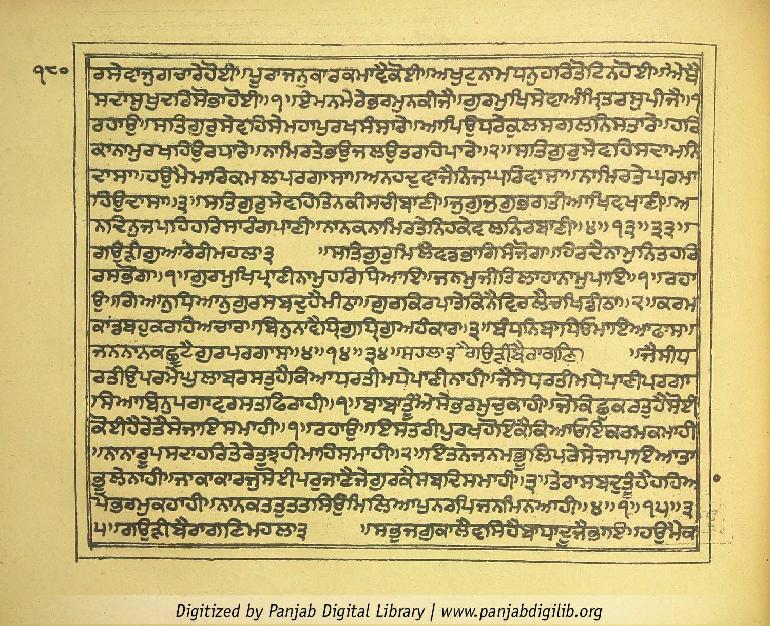 ੧੮੦
ਰਸੇਵਾਜੁਗਚਾਰੇਹੋਈ॥ਪੂਰਾਜਨੁਕਾਰਕਮਾਵੈਕੋਈ॥ਅਖੁਟੁਨਾਮਧਨੁਹਰਿਤੋਟਿਨਹੋਈ॥ਐਥੈ
ਸਦਾਸੁਖੁਦਰਿਸੋਭਾਹੋਈ॥੧॥ਏਮਨਮੇਰੇਭਰਮੁਨਕੀਜੈ॥ਗੁਰਮੁਖਿਸੇਵਾਅੰਮ੍ਰਿਤਰਸੁਪੀਜੈ॥੧
ਰਹਾਉ॥ਸਤਿਗੁਰੁਸੇਵਹਿਸੇਮਹਾਪੁਰਖਸੰਸਾਰੇ॥ਆਪਿਉਧਰੇਕੁਲਸਗਲਨਿਸਤਾਰੇ॥ਹਰਿ
ਕਾਨਾਮੁਰਖਹਿਉਰਧਾਰੇ॥ਨਾਮਿਰਤੇਭਉਜਲਉਤਰਹਿਪਾਰੇ॥੨॥ਸਤਿਗੁਰੁਸੇਵਹਿਸਦਾਮਨਿ
ਦਾਸਾ॥ਹਉਮੈਮਾਰਿਕਮਲੁਪਰਗਾਸਾ॥ਅਨਹਦੁਵਾਜੈਨਿਜਘਰਿਵਾਸਾ॥ਨਾਮਿਰਤੇਘਰਮਾ
ਹਿਉਦਾਸਾ॥੩॥ਸਤਿਗੁਰੁਸੇਵਹਿਤਿਨਕੀਸਚੀਬਾਣੀ॥ਜੁਗੁਜੁਗੁਭਗਤੀਆਖਿਵਖਾਣੀ॥ਅ
ਨਦਿਨੁਜਪਹਿਹਰਿਸਾਰੰਗਪਾਣੀ॥ਨਾਨਕਨਾਮਿਰਤੇਨਿਹਕੇਵਲਨਿਰਬਾਣੀ॥੪॥੧੩॥੩੩॥
ਗਉੜੀਗੁਆਰੇਰੀਮਹਲਾ੩ ॥ਸਤਿਗੁਰੁਮਿਲੈਵਡਭਾਗਿਸੰਜੋਗ॥ਹਿਰਦੈਨਾਮੁਨਿਤਹਰਿ
ਰਸਭੋਗ॥੧॥ਗੁਰਮੁਖਿਪ੍ਰਾਣੀਨਾਮੁਹਰਿਧਿਆਇ॥ਜਨਮੁਜੀਤਿਲਾਹਾਨਾਮੁਪਾਇ॥੧॥ਰਹਾ
ਉ॥ਗਿਆਨੁਧਿਆਨੁਗੁਰਸਬਦੁਹੈਮੀਠਾ॥ਗੁਰਕਿਰਪਾਤੇਕਿਨੈਵਿਰਲੈਚਖਿਡੀਠਾ॥੨॥ਕਰਮ
ਕਾਂਡਬਹੁਕਰਹਿਅਚਾਰ॥ਬਿਨੁਨਾਵੈਧ੍ਰਿਗੁਧ੍ਰਿਗੁਅਹੰਕਾਰ॥੩॥ਬੰਧਨਿਬਾਧਿਓਮਾਇਆਫਾਸ॥
ਜਨਨਾਨਕਛੂਟੈਗੁਰਪਰਗਾਸ॥੪॥੧੪॥੩੪॥ਮਹਲਾ੩ ਗਉੜੀਬੈਰਾਗਣਿ ॥ਜੈਸੀਧ
ਰਤੀਊਪਰਮੇਘੁਲਾਬਰਸਤੁਹੈਕਿਆਧਰਤੀਮਧੇਪਾਣੀਨਾਹੀ॥ਜੈਸੇਧਰਤੀਮਧੇਪਾਣੀਪਰਗਾ
ਸਿਆਬਿਨੁਪਗਾਵਰਸਤਫਿਰਾਹੀ॥੧॥ਬਾਬਾਤੂੰਐਸੇਭਰਮੁਚੁਕਾਹੀ॥ਜੋਕਿਛੁਕਰਤੁਹੈਸੋਈ
ਕੋਈਹੈਰੇਤੈਸੇਜਾਇਸਮਾਹੀ॥੧॥ਰਹਾਉ॥ਇਸਤਰੀਪੁਰਖਹੋਇਕੈਕਿਆਓਇਕਰਮਕਮਾਹੀ
॥ਨਾਨਾਰੂਪਸਦਾਹਹਿਤੇਰੇਤੁਝਹੀਮਾਹਿਸਮਾਹੀ॥੨॥ਇਤਨੇਜਨਮਭੂਲਿਪਰੇਸੇਜਾਪਾਇਆਤਾ
ਭੂਲੇਨਾਹੀ॥ਜਾਕਾਕਾਰਜੁਸੋਈਪਰੁਜਾਣੈਜੇਗੁਰਕੈਸਬਦਿਸਮਾਹੀ॥੩॥ਤੇਰਾਸਬਦੁਤੂੰਹੈਹਹਿਆ
ਪੇਭਰਮੁਕਹਾਹੀ॥ਨਾਨਕਤਤੁਤਤਸਿਉਮਿਲਿਆਪੁਨਰਪਿਜਨਮਿਨਆਹੀ॥੪॥੧॥੧੫॥੩
੫॥ਗਉੜੀਬੈਰਾਗਣਿਮਹਲਾ੩ ॥ਸਭੁਜਗੁਕਾਲੈਵਸਿਹੈਬਾਧਾਦੂਜੈਭਾਇ॥ਹਉਮੈਕ
Digitized by Panjab Digital Library | www.panjabdigilib.org